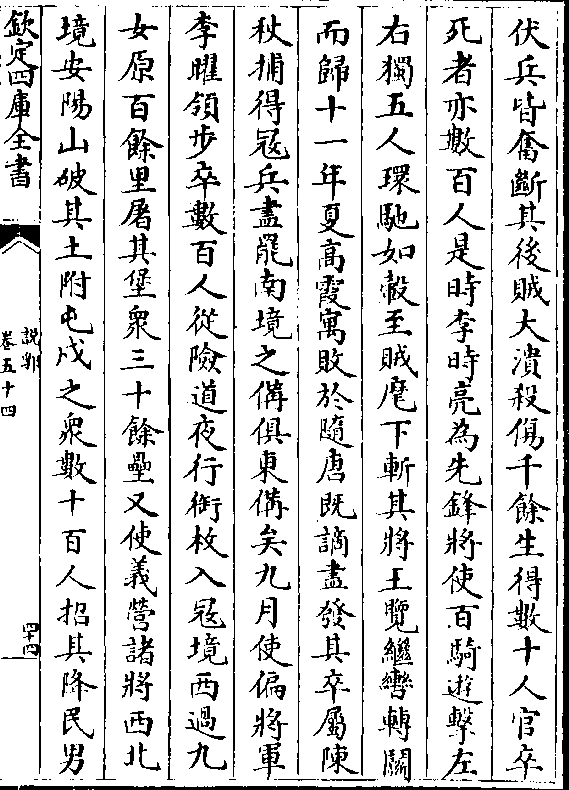 伏兵皆奮斷其後賊大潰殺傷千餘生得數十人官卒
死者亦數百人是時李時亮為先鋒將使百騎遊擊左
右獨五人環馳如轂至賊麾下斬其將王覽繼轡轉鬭
而歸十一年夏高霞寓敗於隨唐既謫盡發其卒屬陳
秋捕得冦兵盡罷南境之備俱東備矣九月使偏將軍
李曜領步卒數百人從險道夜行銜枚入冦境西過九
女原百餘里屠其堡衆三十餘壘又使義營諸將西北
境安陽山破其土附屯戍之衆數十百人招其降民男
欽定四庫全書
說郛
卷五十四
四十四